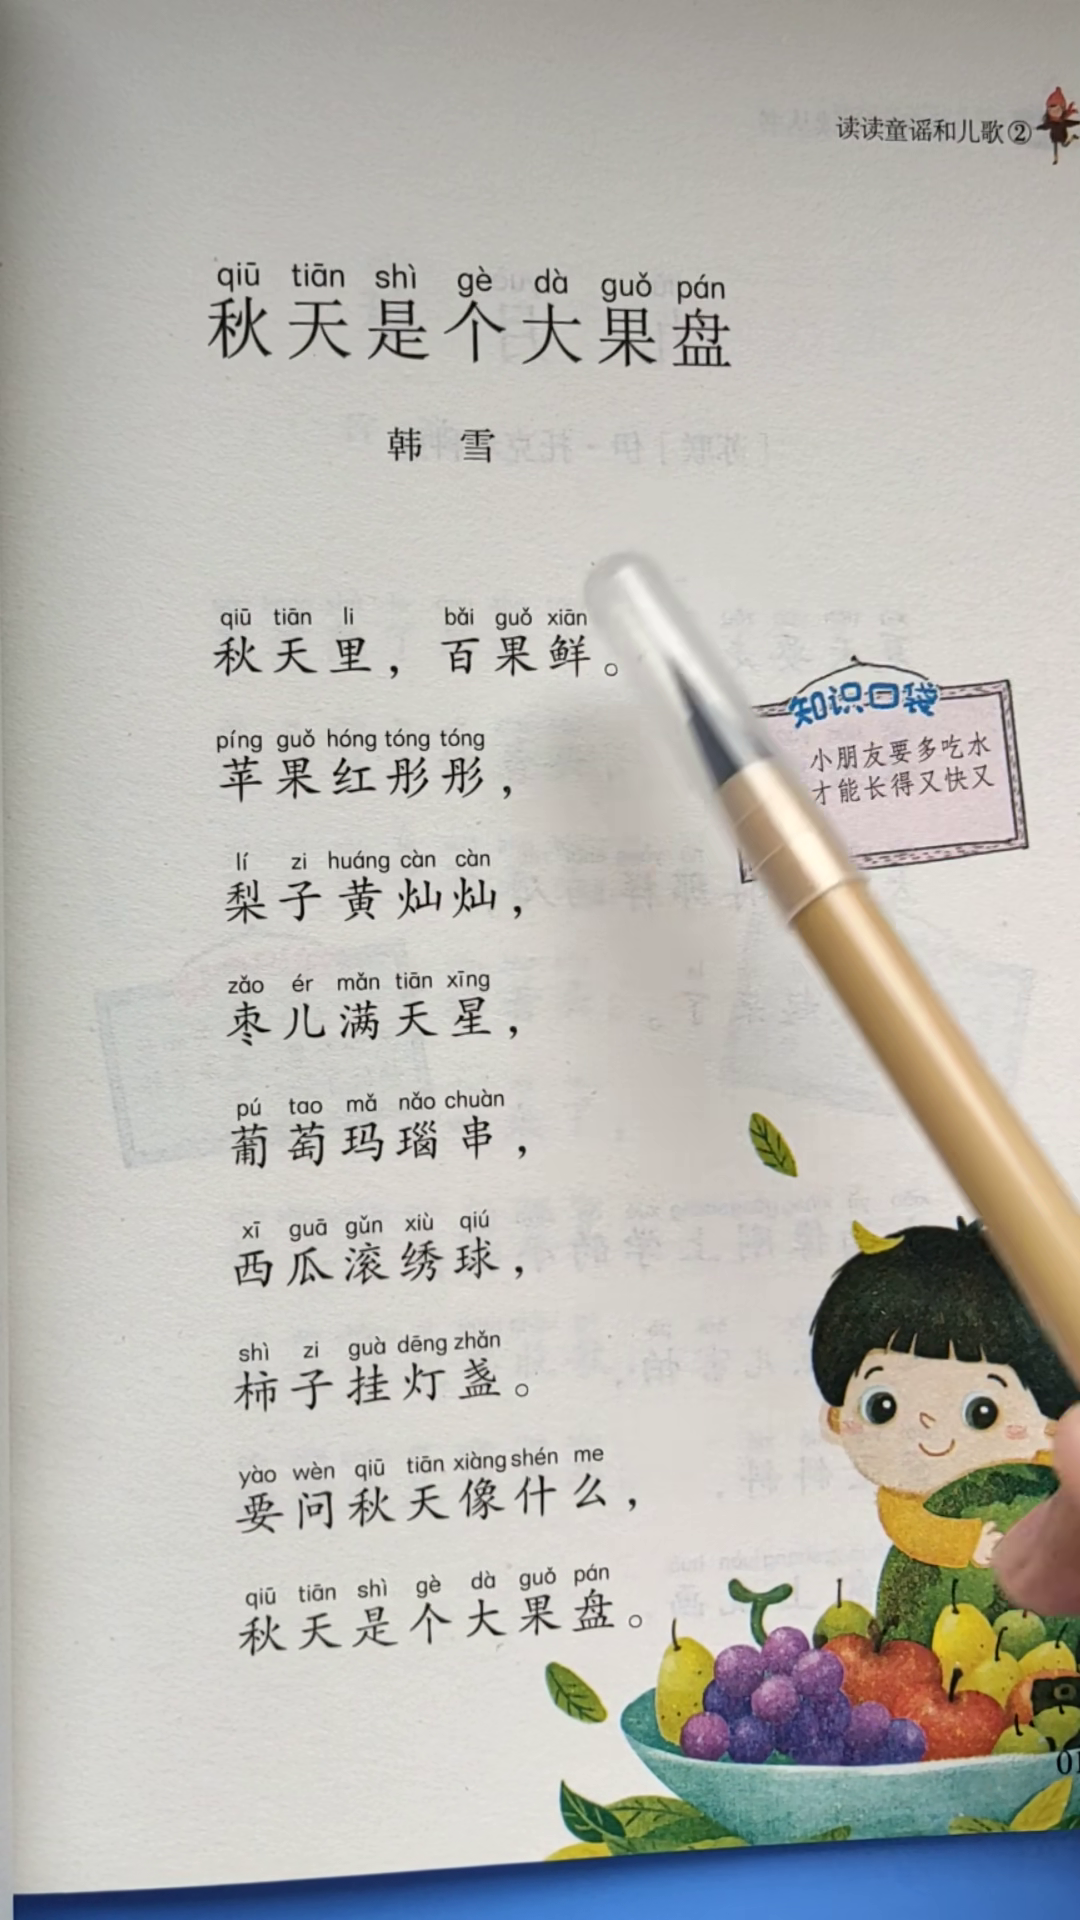 读读童谣和儿歌②
qiū tiān shì gè dà guǒ pán
秋天是个大果盘
韩 雪
qiū tiān li bǎi guǒ xiān
秋天里，百果鲜。
píng guǒ hóng tóng tóng
苹果红彤彤，
lí zi huáng càn càn
梨子黄灿灿，
zǎo ér mǎn tiān xīng
枣儿满天星，
pú tao mǎ nǎo chuàn
葡萄玛瑙串，
xī guā gǔn xiù qiú
西瓜滚绣球，
shì zi guà dēng zhǎn
柿子挂灯盏。
yào wèn qiū tiān xiàng shén me
要问秋天像什么，
qiū tiān shì gè dà guǒ pán
秋天是个大果盘。
知识口袋
小朋友要多吃水
才能长得又快又